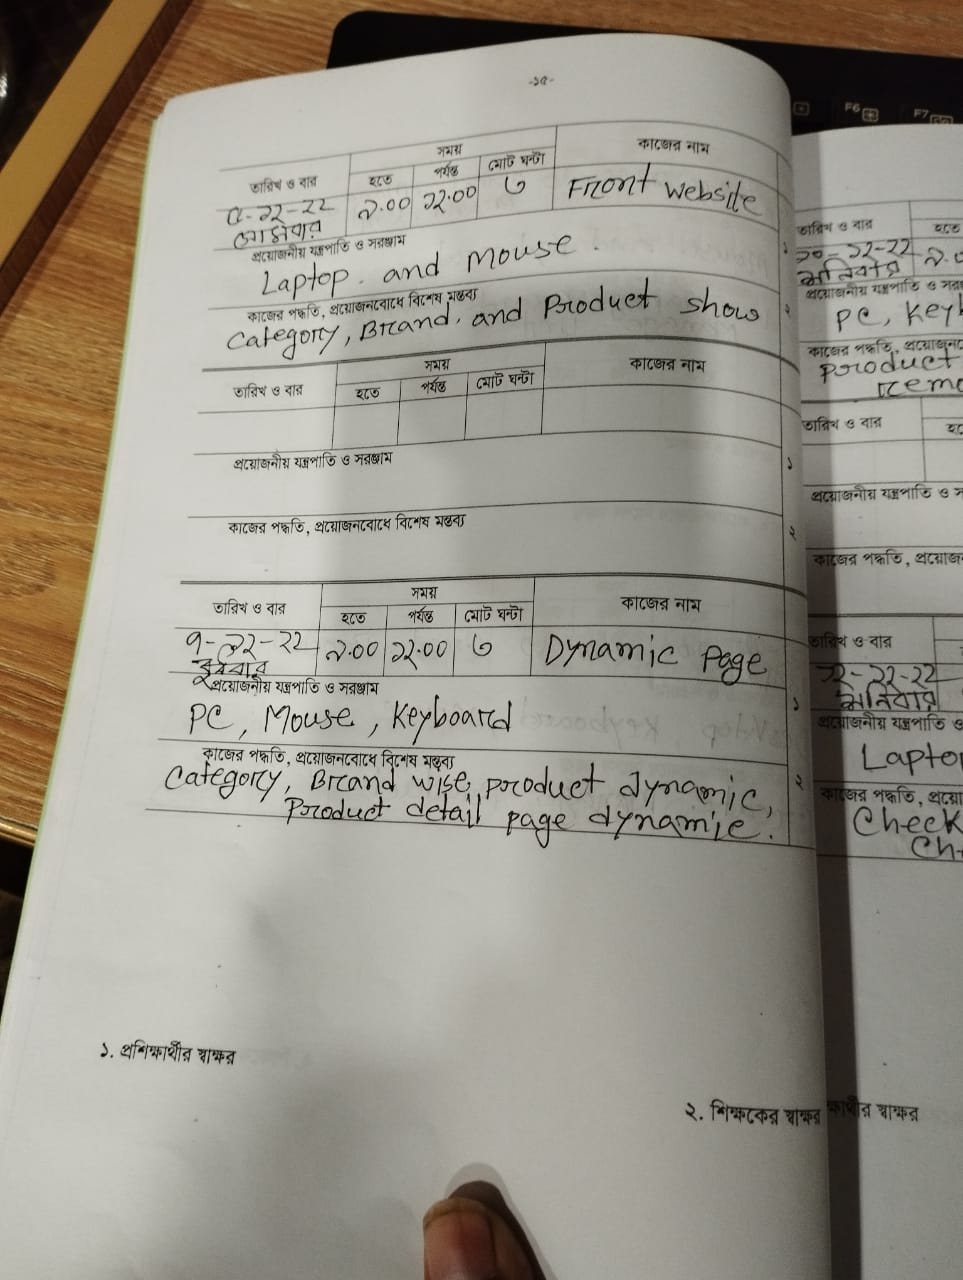 -১৫-
তারিখ ও বার সময় কাজের নাম
হতে পর্যন্ত মোট ঘন্টা
৫-১২-২২ ৯.০০ ১২.০০ ৩ Front website
সোমবার
প্রয়োজনীয় যন্ত্রপাতি ও সরঞ্জাম
Laptop. and Mouse.
কাজের পদ্ধতি, প্রয়োজনবোধে বিশেষ মন্তব্য
Category, Brand, and Product show
তারিখ ও বার সময় কাজের নাম
হতে পর্যন্ত মোট ঘন্টা
প্রয়োজনীয় যন্ত্রপাতি ও সরঞ্জাম
১
কাজের পদ্ধতি, প্রয়োজনবোধে বিশেষ মন্তব্য
২
তারিখ ও বার সময় কাজের নাম
হতে পর্যন্ত মোট ঘন্টা
৭-১২-২২ ৯.০০ ১২.০০ ৩ Dynamic Page
বুধবার
প্রয়োজনীয় যন্ত্রপাতি ও সরঞ্জাম
১
PC, Mouse, Keyboard
কাজের পদ্ধতি, প্রয়োজনবোধে বিশেষ মন্তব্য
২
Category, Brand wise product dynamic,
Product detail page dynamic.
১. প্রশিক্ষার্থীর স্বাক্ষর
২. শিক্ষকের স্বাক্ষর
তারিখ ও বার হতে
১০-১২-২২
শনিবার
প্রয়োজনীয় যন্ত্রপাতি ও
PC,
কাজের পদ্ধতি,
Product
তারিখ ও বার
প্রয়োজনীয় যন্ত্রপাতি ও
কাজের পদ্ধতি,
তারিখ ও বার
১২-১২-২২
যন্ত্রপাতি ও
কাজের পদ্ধতি,
Check
স্বাক্ষর
F6 F7